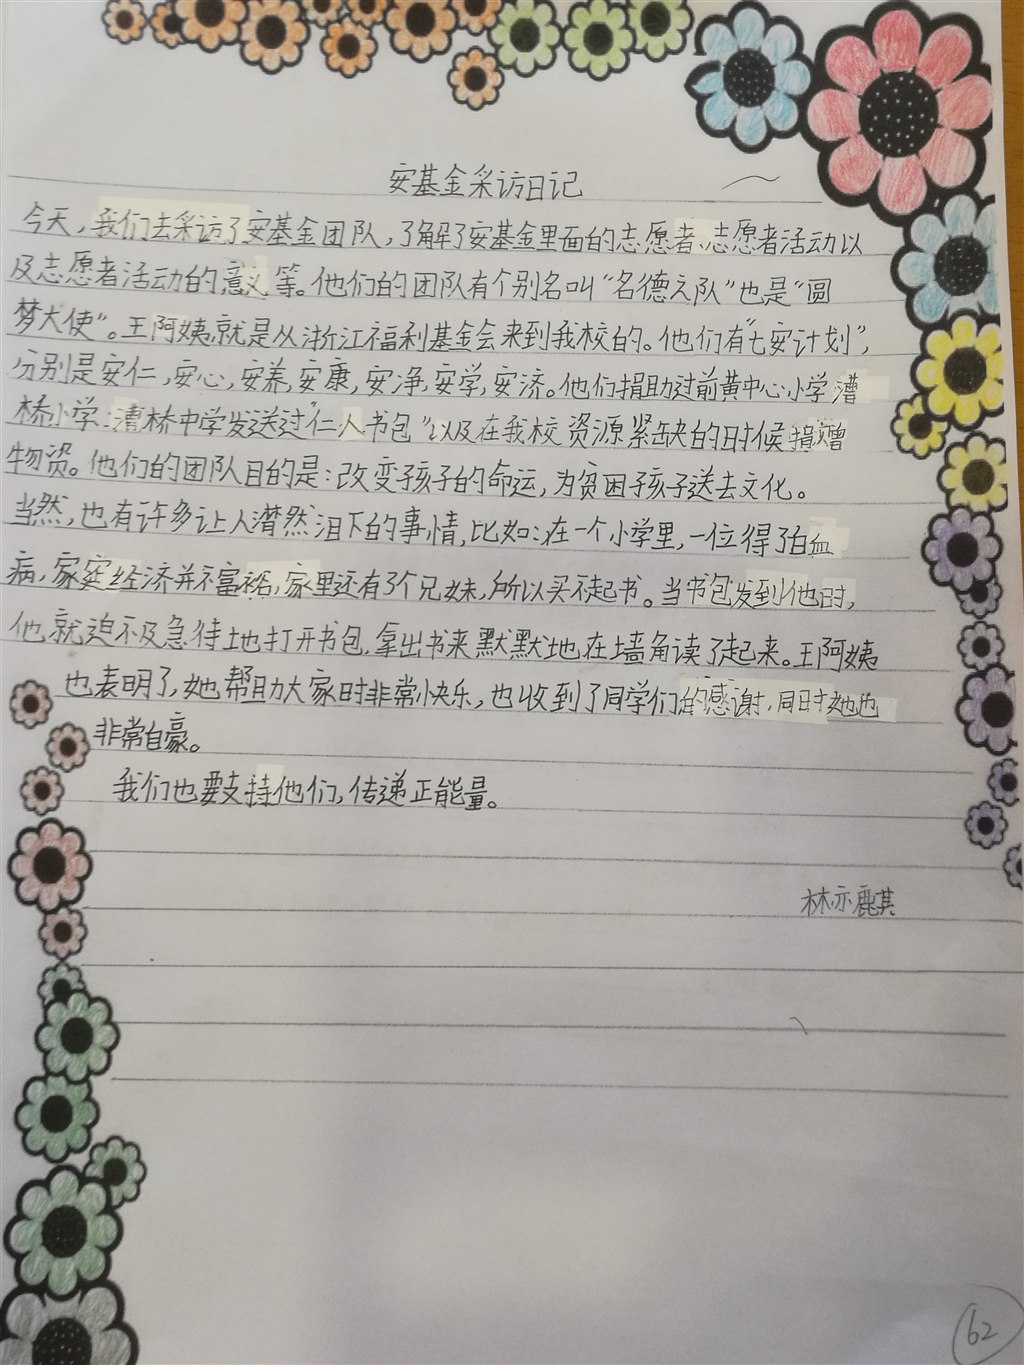 安基金采访日记
今天，我们去采访了安基金团队，了解了安基金里面的志愿者、志愿者活动以
及志愿者活动的意义等。他们的团队有个别名叫“名德之队”也是“圆
梦大使”。王阿姨就是从浙江福利基金会来到我校的。他们有“七安计划”，
分别是安仁，安心，安养，安康，安净，安学，安济。他们捐助过前黄中心小学漕
桥小学：漕桥中学发送过“仁人书包”以及在我校资源紧缺的时候捐赠
物资。他们的团队目的是：改变孩子的命运，为贫困子孩子送去文化。
当然，也有许多让人潸然泪下的事情，比如：在一个小学里，一位得了白血
病，家庭经济并不富裕，家里还有3个兄妹，所以买不起书。当书包发到他时，
他就迫不及急待地打开书包，拿出书来默默地在墙角读了起来。王阿姨
也表明了，她帮助大家时非常快乐，也收到了同学们的感谢，同时她也
非常自豪。
我们也要支持他们，传递正能量。
林亦麒
62